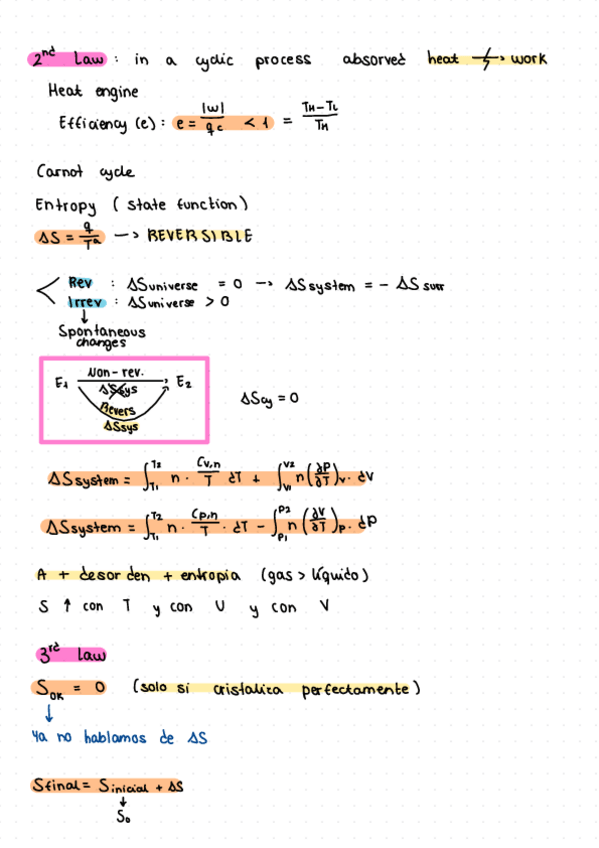 2nd Law : in a cyclic process absorved heat ⇸ work
Heat engine
Efficiency (e) : e = |w|/qc < 1 = (TH-TL)/TH
Carnot cycle
Entropy ( state function )
ΔS = q/Ta -> REVERSIBLE
Rev : ΔSuniverse = 0 -> ΔSsystem = - ΔSsurr
Irrev : ΔSuniverse > 0
↓
Spontaneous
changes
Non-rev.
E1 E2
ΔSsys
Revers
ΔSsys
ΔScy = 0
ΔSsystem = ∫T1^T2 n · Cv,n/T dT + ∫V1^V2 n (∂P/∂T)v · dV
ΔSsystem = ∫T1^T2 n · Cp,n/T · dT - ∫P1^P2 n (∂V/∂T)p · dP
A + desorden + entropia (gas > líquido)
S ↑ con T y con U y con V
3rd Law
S0K = 0 (solo si cristaliza perfectamente)
↓
Ya no hablamos de ΔS
Sfinal = Sinicial + ΔS
↓
S0